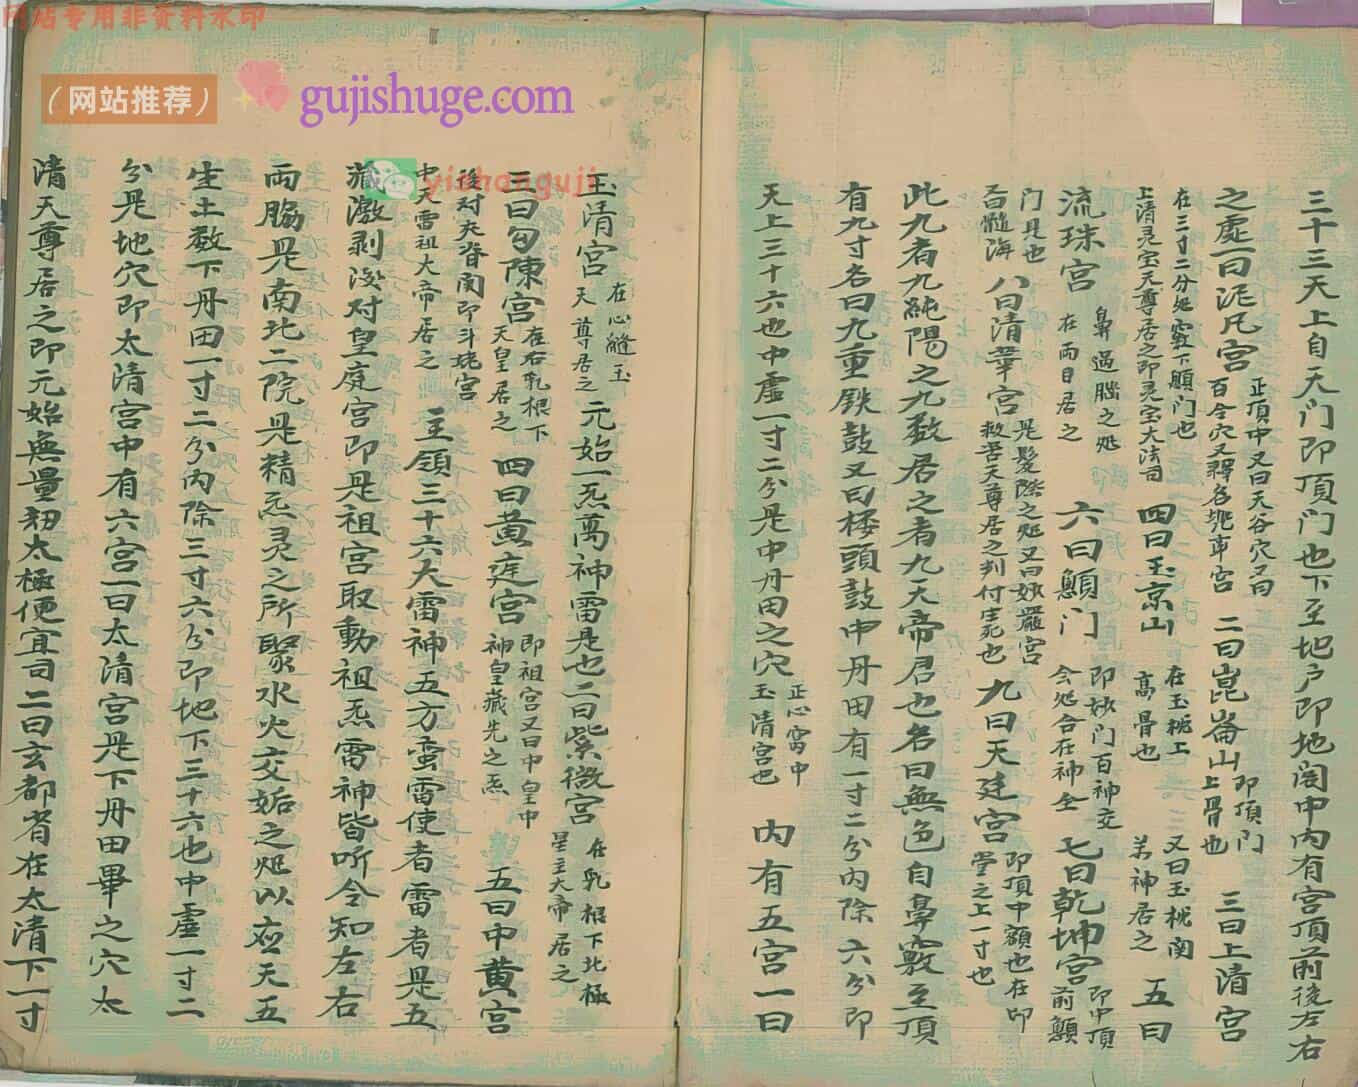 网站专用非资料水印
(网站推荐)
gujishuge.com
yishanguji
三十三天上自天门即頂门也下至地户即地阁中内有宫頂前後左右
之處一曰泥凡宫
正頂中又曰天谷穴又曰
百会穴又釋名
宫
二曰崑崙山
即頂门
上骨也
三曰上清宫
在三寸二分处
下顖门也
上清灵宝天尊居之即灵宝大法司
四曰玉京山
在玉桃上
高骨也
又曰玉桃南
若神居之
五曰
流珠宫
鼻過腦之处
在两目居之
六曰顖门
即妙门百神交
会处合在神全
七曰乾坤宫
即中頂
前顖
门是也
百髓海
八曰清華宫
是髮際之处又曰妙嚴宫
救苦天尊居之判付生死也
九曰天廷宫
即頂中額也在印
堂之上一寸也
此九者九純陽之九数居之者九天帝君也名曰無色自
竅至頂
有九寸名曰九重鉄鼓又曰楼頭鼓中丹田有一寸二分内除六分即
天上三十六也中虚一寸二分是中丹田之穴
正心窩中
玉清宫也
内有五宫一曰
玉清宫
在心縫玉
天尊居之
元始一炁萬神雷是也二曰紫微宫
在乳根下北極
星主大帝居之
三曰勾陳宫
在右乳根下
天皇居之
四曰黄庭宫
即祖宫又曰中皇中
神皇藏先之炁
五曰中黄宫
後对夾脊南即斗姥宫
中天雷祖大帝居之
主領三十六大雷神五方蛮雷使者雷者是五
藏激剥後对皇庭宫即是祖宫取動祖炁雷神皆听令知左右
两腸是南北二院是精炁灵之所聚水火交姤之处以应天五
生土数下丹田一寸二分内除三寸六分即地下三十六也中虚一寸二
分是地穴即太清宫中有六宫一曰太清宫是下丹田畢之穴太
清天尊居之即元始無量劫太極便宜司二曰玄都者在太清下一寸